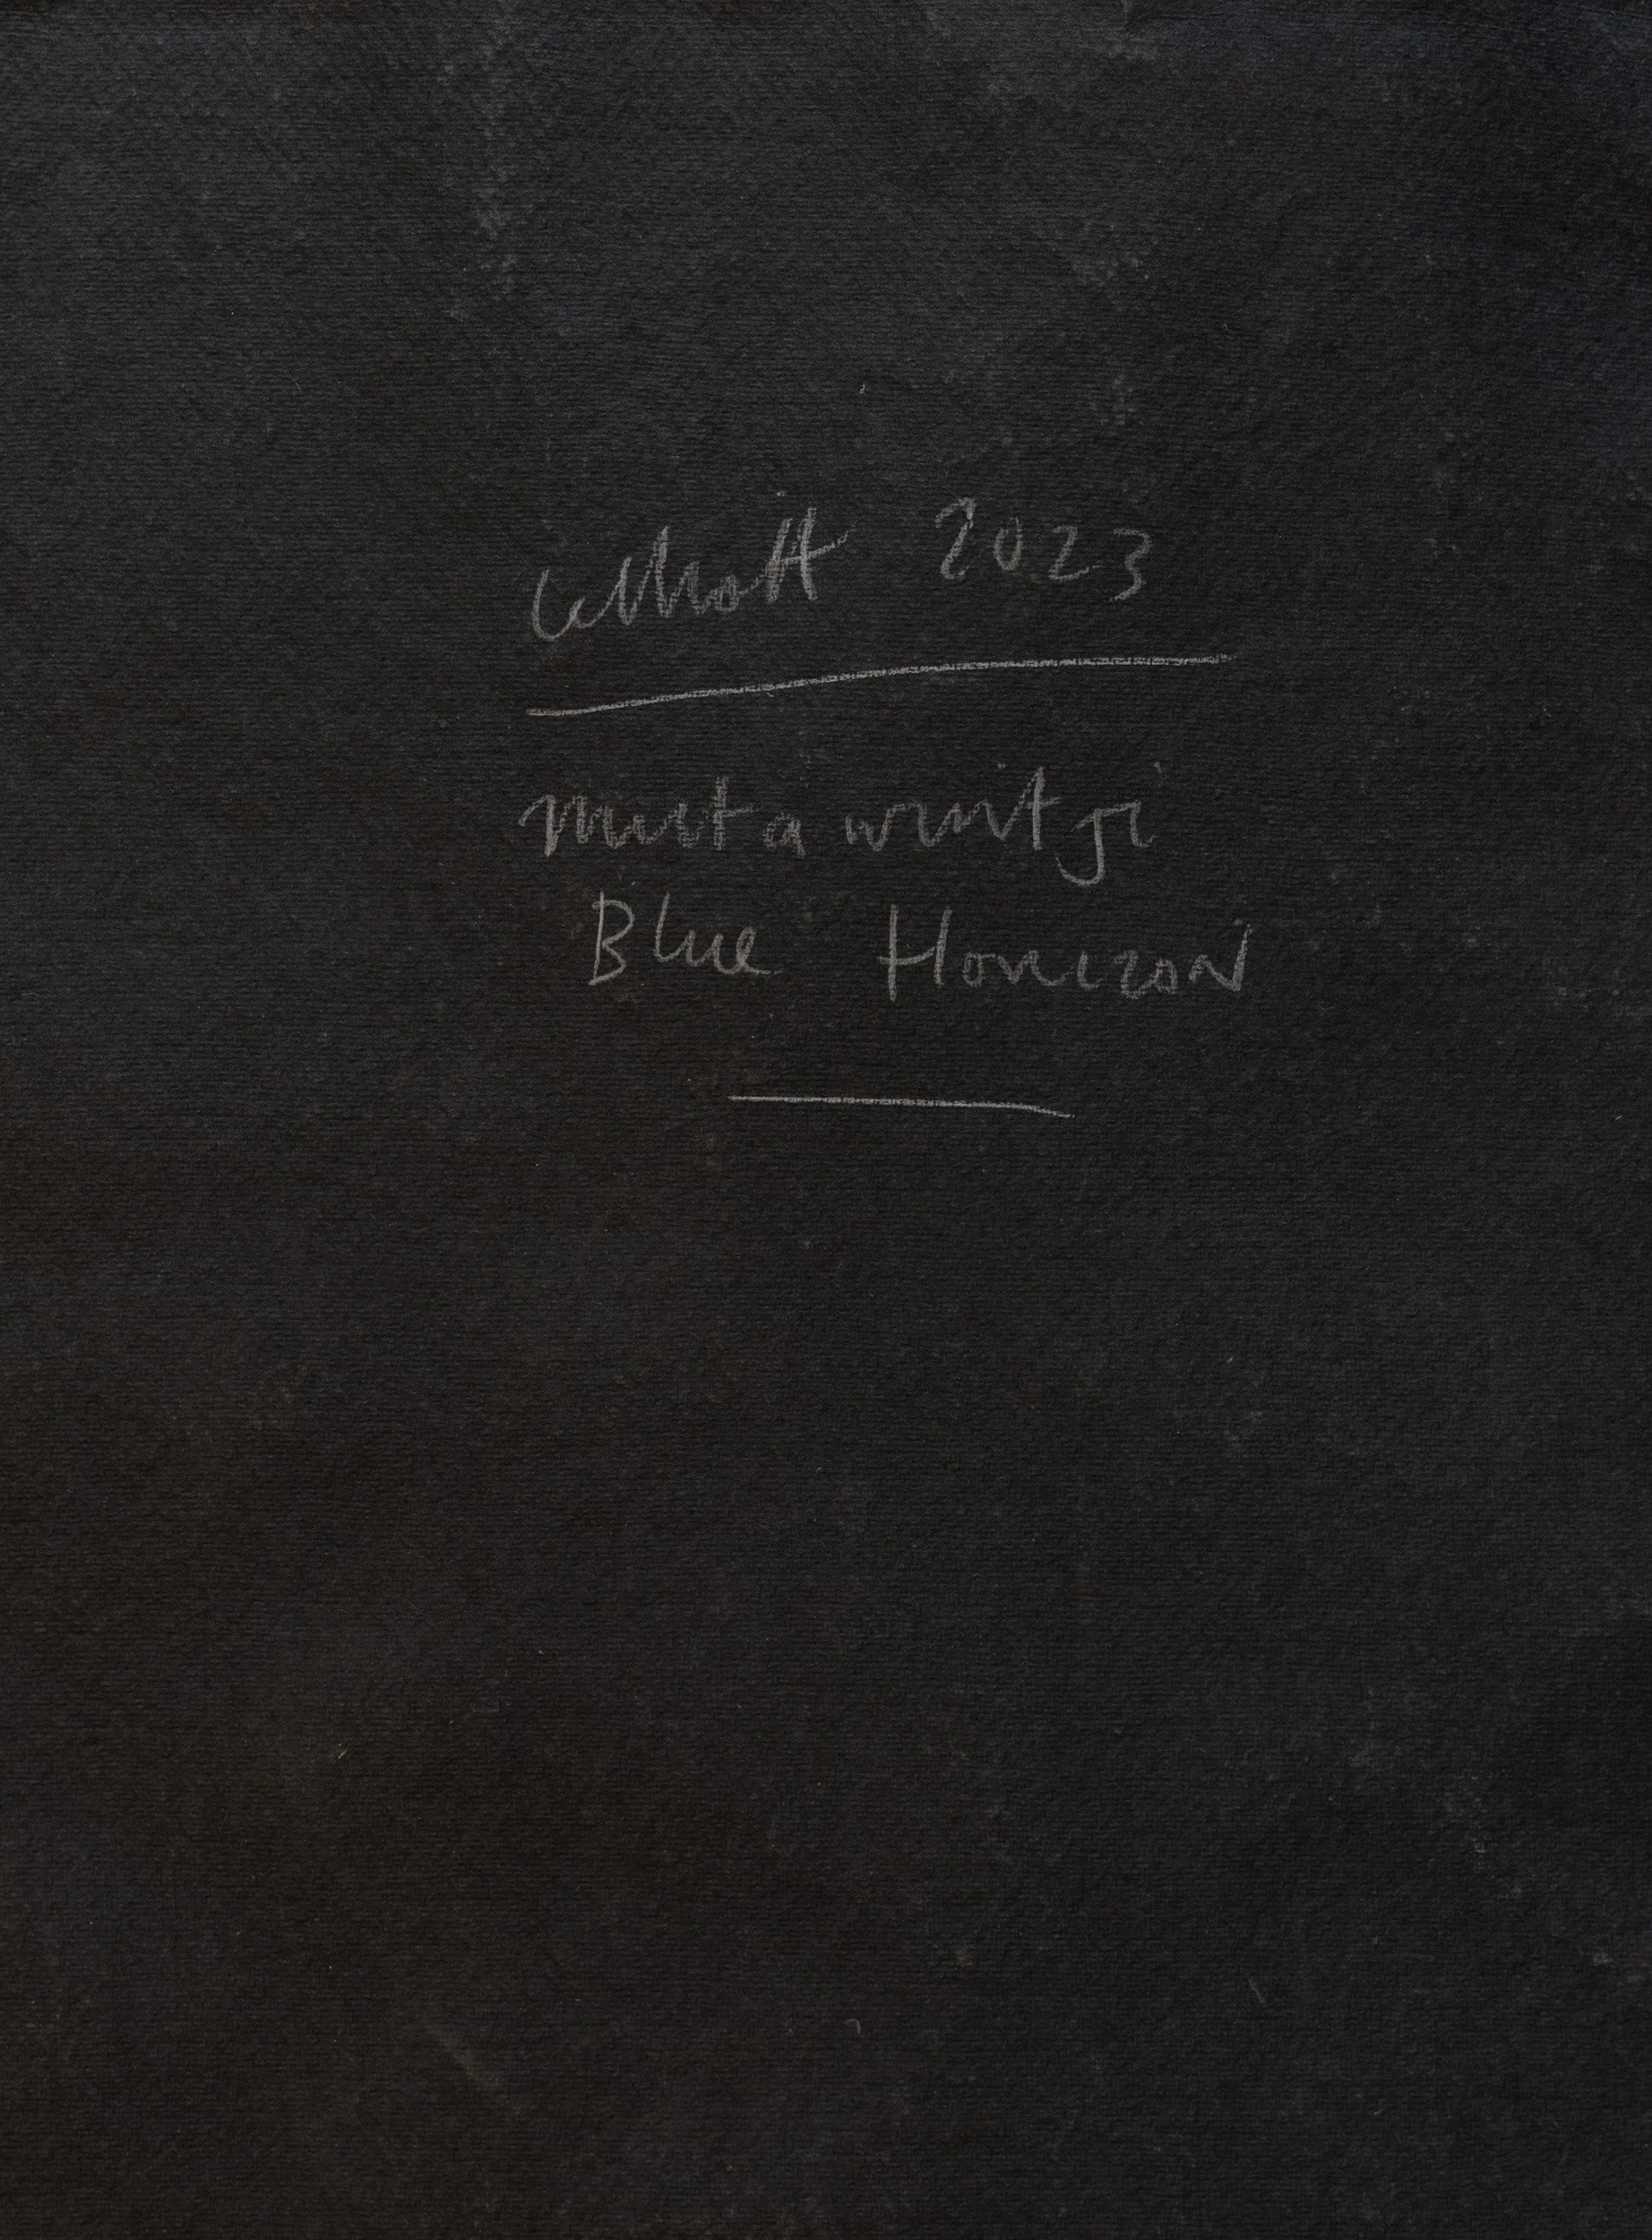 Elliott 2023
Mutawintji
Blue Horizon